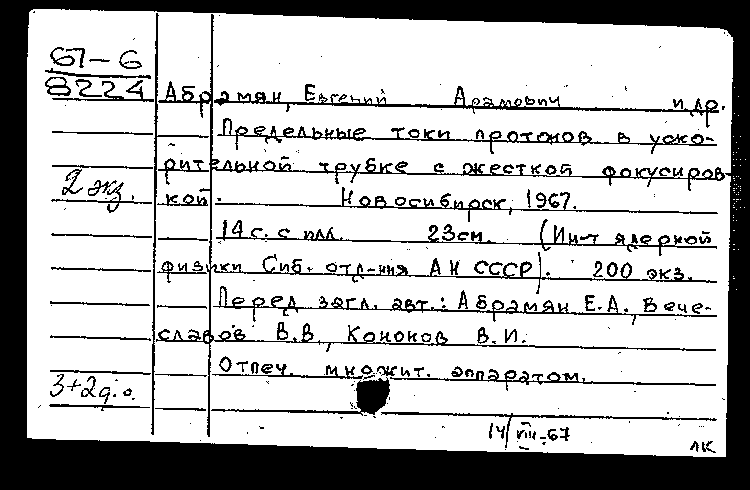 67-6
8224
Абрамян, Евгений Арамович и др.
Предельные токи протонов в уско-
рительной трубке с жесткой фокусиров-
2 экз.
кой. Новосибирск, 1967.
14 с. с илл. 23 см. (Ин-т ядерной
физики Сиб. отд-ния АН СССР). 200 экз.
Перед загл. авт.: Абрамян Е.А., Вече-
славов В.В., Кононов В.И.
Отпеч. множит. аппаратом.
3+2д.о.
14/VIII-67
ЛК